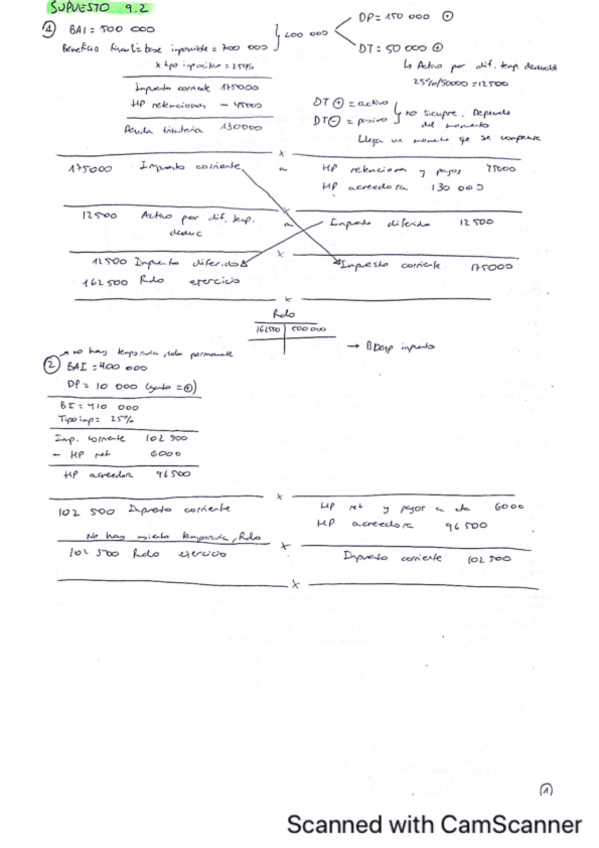 SUPUESTO 9.2
① BAI = 500 000
Beneficio fiscal = base imponible = 700 000
200 000
DP = 150 000 ⊕
DT = 50 000 ⊕
↳ Activo por dif. temp. deducible
25%/50000 = 12500
x tipo impositivo = 25%
Impuesto corriente 175000
HP retenciones - 45000
Deuda tributaria 130000
DT ⊕ = activo
DT ⊖ = pasivo
no siempre. Depende
del momento
Llega un momento que se compensa
x
175000 Impuesto corriente a HP retenciones y pagos 45000
HP acreedora 130 000
x
12500 Activo por dif. temp. a Impuesto diferido 12 500
deduc
x
12500 Impuesto diferido a Impuesto corriente 175000
162 500 Rdo ejercicio
x
Rdo
162500 | 500 000
→ BDesp impuesto
no hay temporaria, solo permanente
② BAI = 400 000
DP = 10 000 (gasto = ⊕)
BI = 410 000
Tipo imp = 25%
Imp. corriente 102 500
- HP ret 6000
HP acreedora 96 500
x
102 500 Impuesto corriente HP ret y pagos a cta 6000
HP acreedora 96 500
No hay asiento temporaria, Rdo
x
102 500 Rdo ejercicio Impuesto corriente 102 500
x
①
Scanned with CamScanner